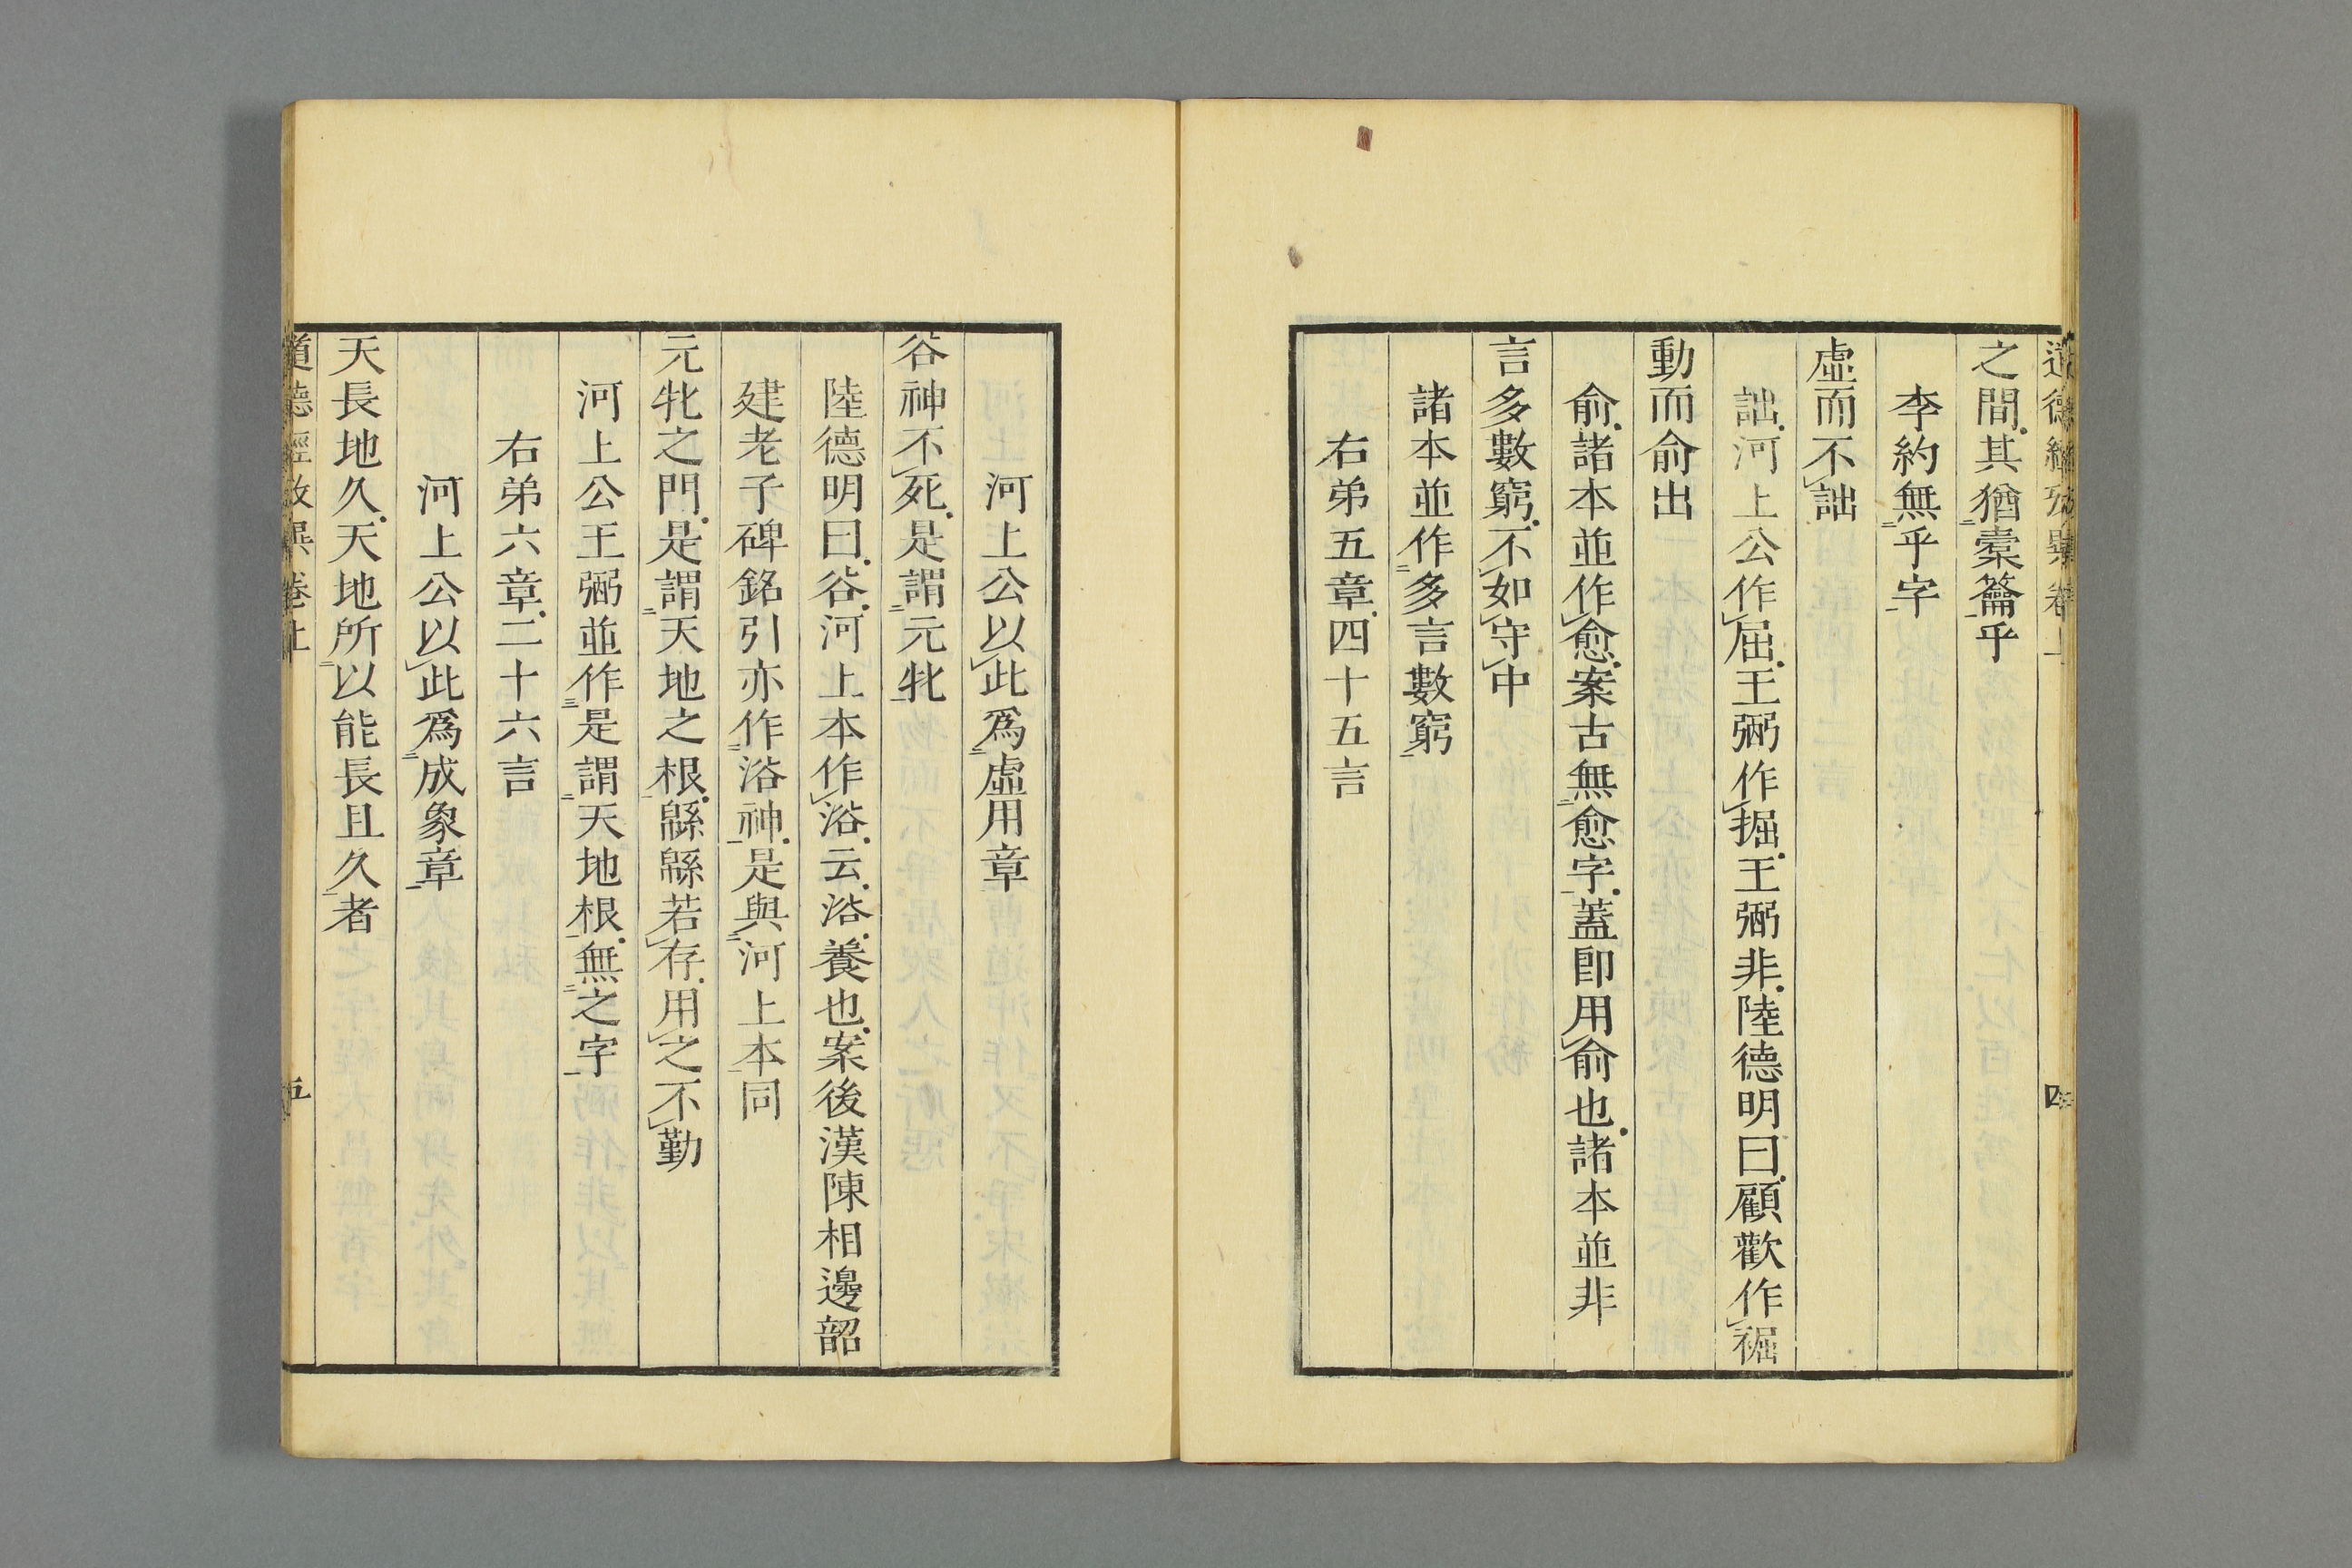 道德經攷異卷上 四
之間其猶橐籥乎
李約無乎字
虛而不詘
詘河上公作屈王弼作掘王弼非陸德明曰顧歡作𥚑
動而俞出
俞諸本並作愈案古無愈字蓋卽用俞也諸本並非
言多數窮不如守中
諸本並作多言數窮
右弟五章四十五言
河上公以此爲虛用章
谷神不死是謂元牝
陸德明曰谷河上本作浴云浴養也案後漢陳相邊韶
建老子碑銘引亦作浴神是與河上本同
元牝之門是謂天地之根緜緜若存用之不勤
河上公王弼並作是謂天地根無之字
右弟六章二十六言
河上公以此爲成象章
天長地久天地所以能長且久者
道德經攷異卷上 五